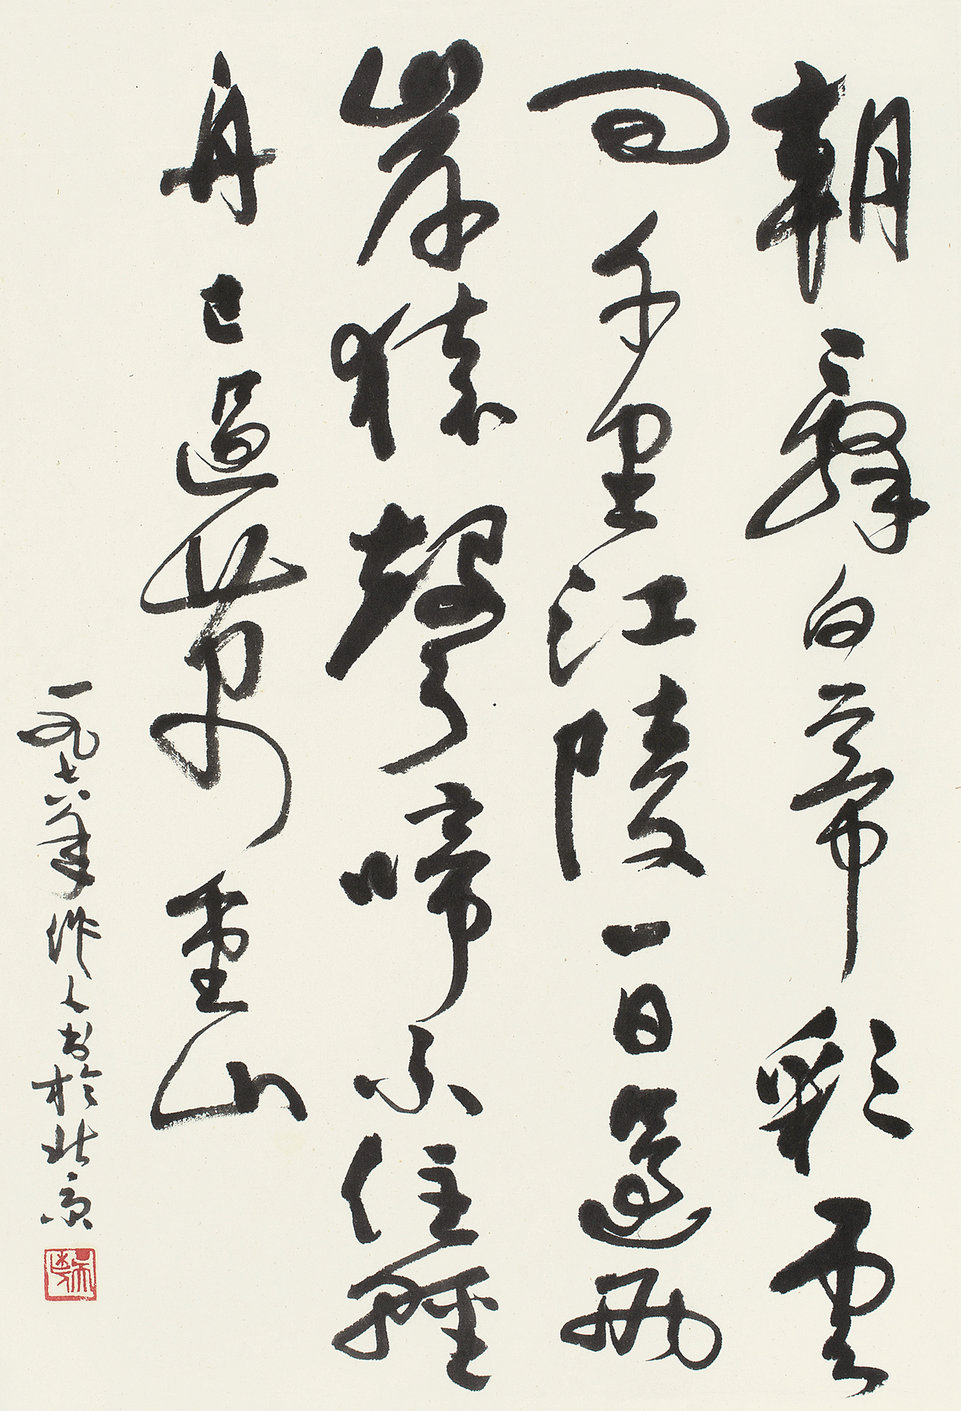 朝辭白帝彩雲
間千里江陵一日還兩
岸猿聲啼不住輕
舟已過萬重山
一九七六年作人書於北京